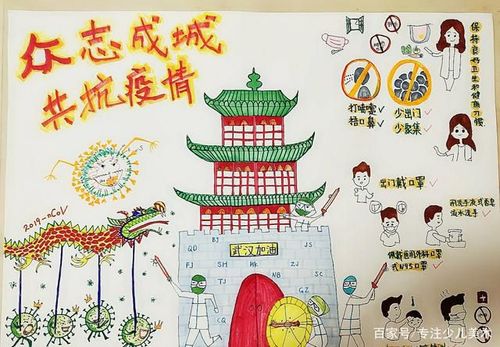 众志成城
共抗疫情
保持良好卫生和健康习惯
打喷嚏
捂口鼻
少出门
少聚集
2019-nCoV
出门戴口罩
用洗手液或香皂
流水洗手
佩戴医用外科口罩
或N95口罩
武汉加油
QD
BJ
JS
SH
HK
ZJ
百家号/专注少儿美术